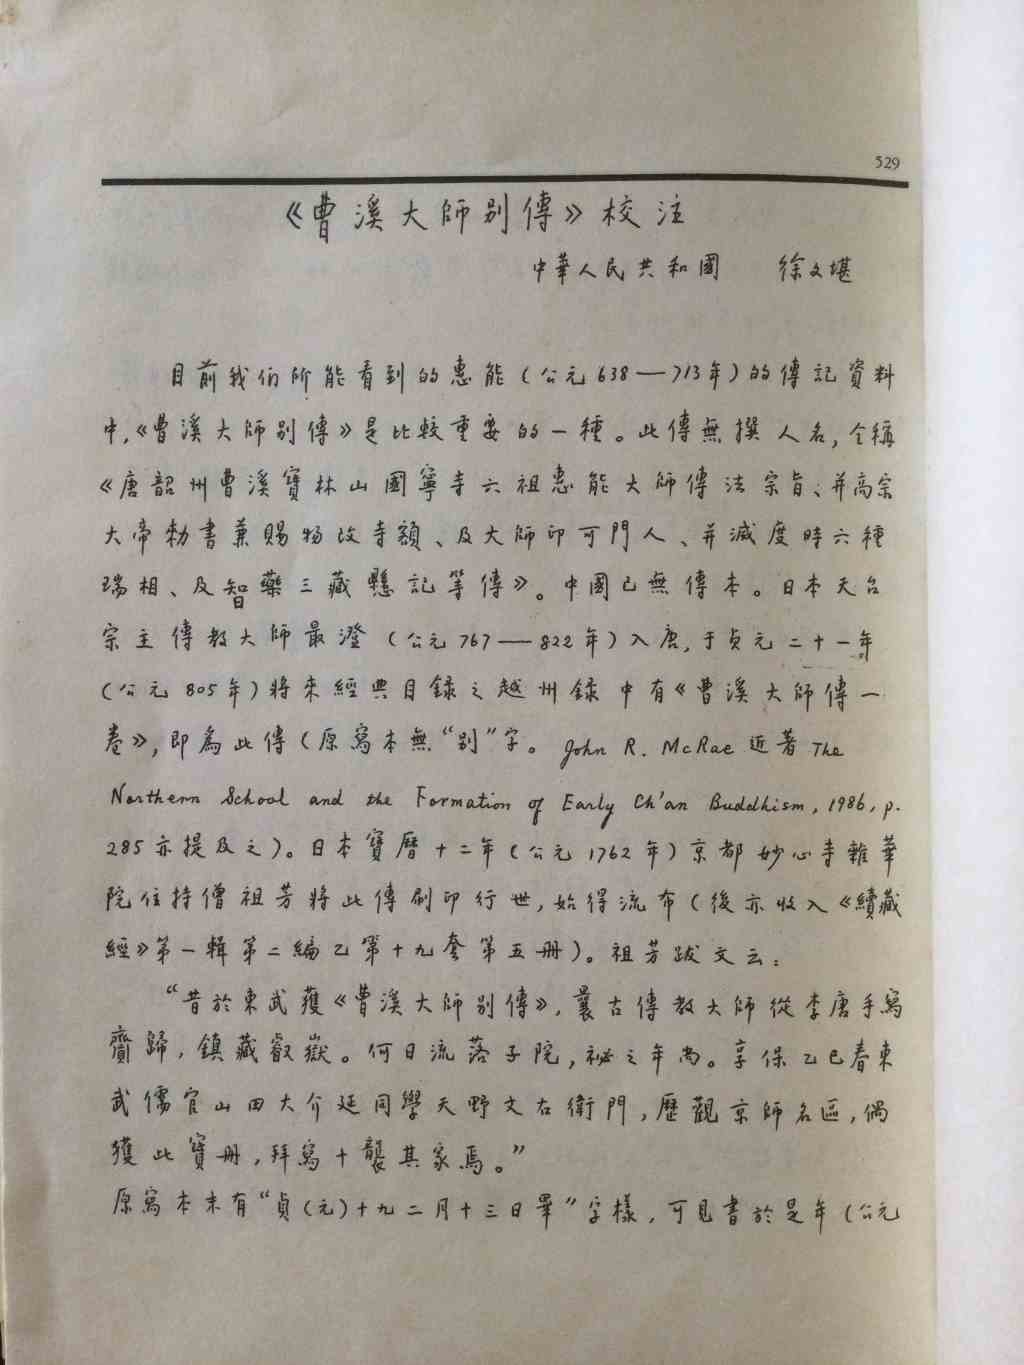 529
《曹溪大師別傳》校注
中華人民共和國 徐文堪
目前我們所能看到的惠能（公元638—713年）的傳記資料
中，《曹溪大師別傳》是比較重要的一種。此傳無撰人名，全稱
《唐韶州曹溪寶林山國寧寺六祖惠能大師傳法宗旨、并高宗
大帝勅書兼賜物改寺額、及大師印可門人、并滅度時六種
瑞相、及智藥三藏懸記等傳》。中國已無傳本。日本天台
宗主傳教大師最澄（公元767—822年）入唐，于貞元二十一年
（公元805年）將來經典目錄之越州錄中有《曹溪大師傳一
卷》，即爲此傳（原寫本無“別”字。John R. McRae 近著 The
Northern School and the Formation of Early Ch'an Buddhism, 1986, p.
285亦提及之）。日本寶曆十二年（公元1762年）京都妙心寺雜華
院住持僧祖芳將此傳刷印行世，始得流布（後亦收入《續藏
經》第一輯第二編乙第十九套第五冊）。祖芳跋文云：
“昔於東武獲《曹溪大師別傳》，曩古傳教大師從李唐手寫
齎歸，鎮藏叡嶽。何日流落子院，祕之年尚。享保乙巳春東
武儒官山田大介延同學天野文右衛門，歷觀京師名區，偶
獲此寶冊，拜寫十襲其家焉。”
原寫本末有“貞（元）十九二月十三日畢”字樣，可見書於是年（公元